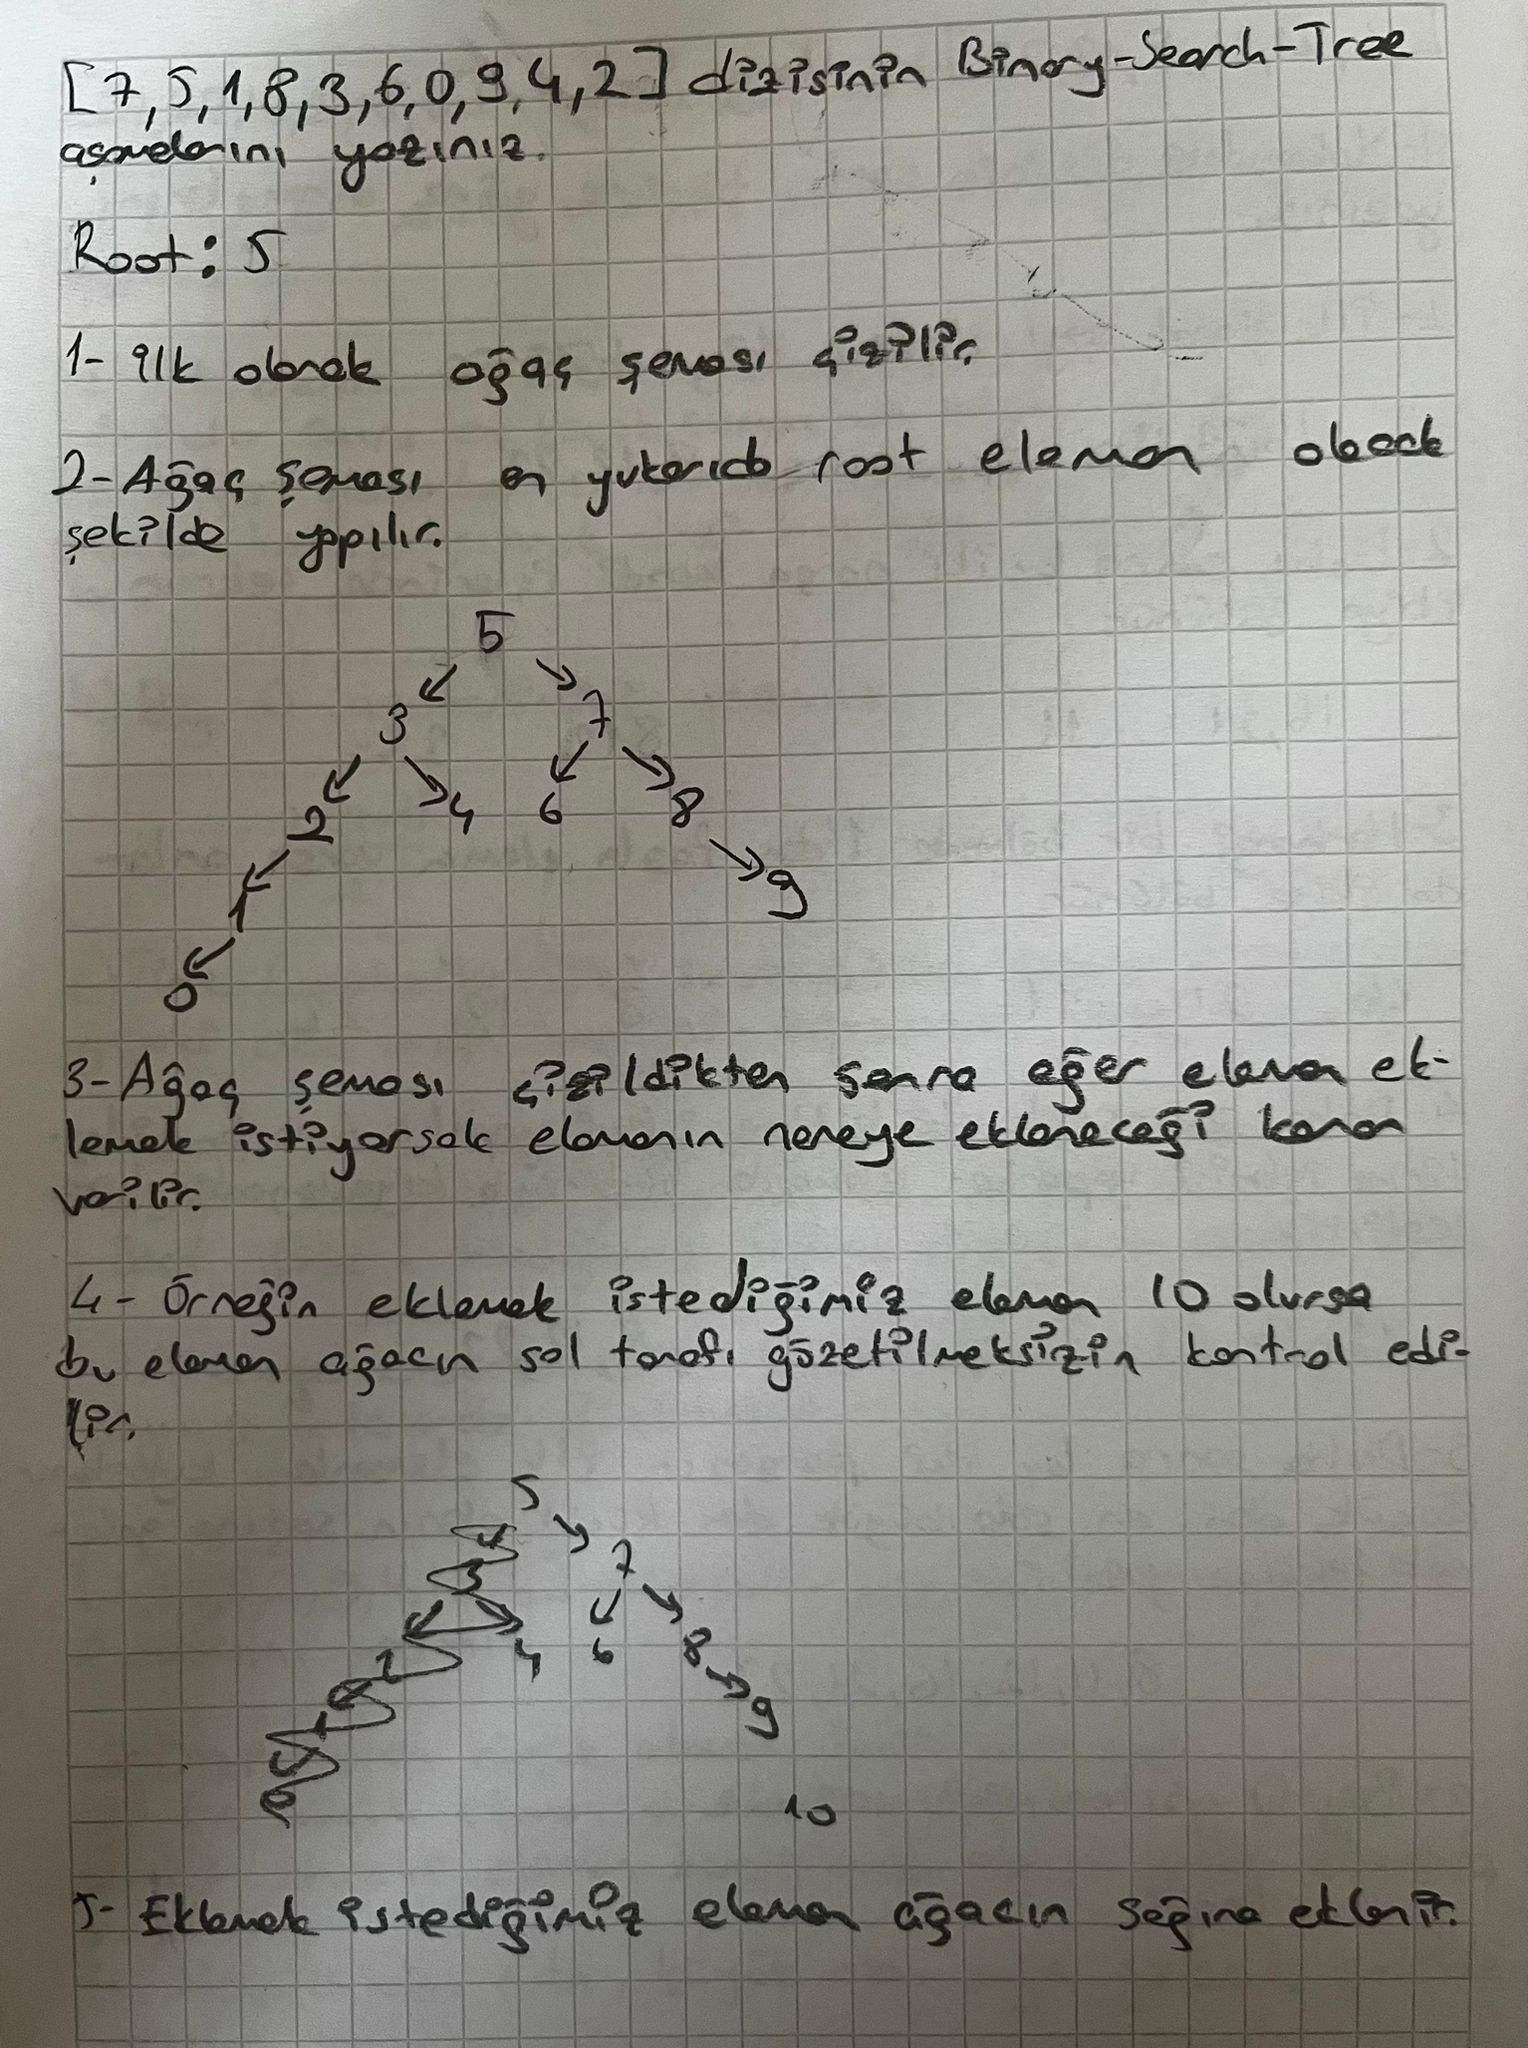 [7,5,1,8,3,6,0,9,4,2] dizisinin Binary-Search-Tree
aşamalarını yazınız.
Root: 5
1- İlk olarak ağaç şeması çizilir.
2- Ağaç şeması en yukarıda root eleman olacak
şekilde yapılır.
5
3 7
2 4 6 8
1 9
0
3- Ağaç şeması çizildikten sonra eğer eleman ek-
lemek istiyorsak elemanın nereye ekleneceği karar
verilir.
4- Örneğin eklemek istediğimiz eleman 10 olursa
bu eleman ağacın sol tarafı gözetilmeksizin kontrol edi-
lir.
5
3 7
2 4 6 8
1 9
0 10
5- Eklemek istediğimiz eleman ağacın sağına eklenir.